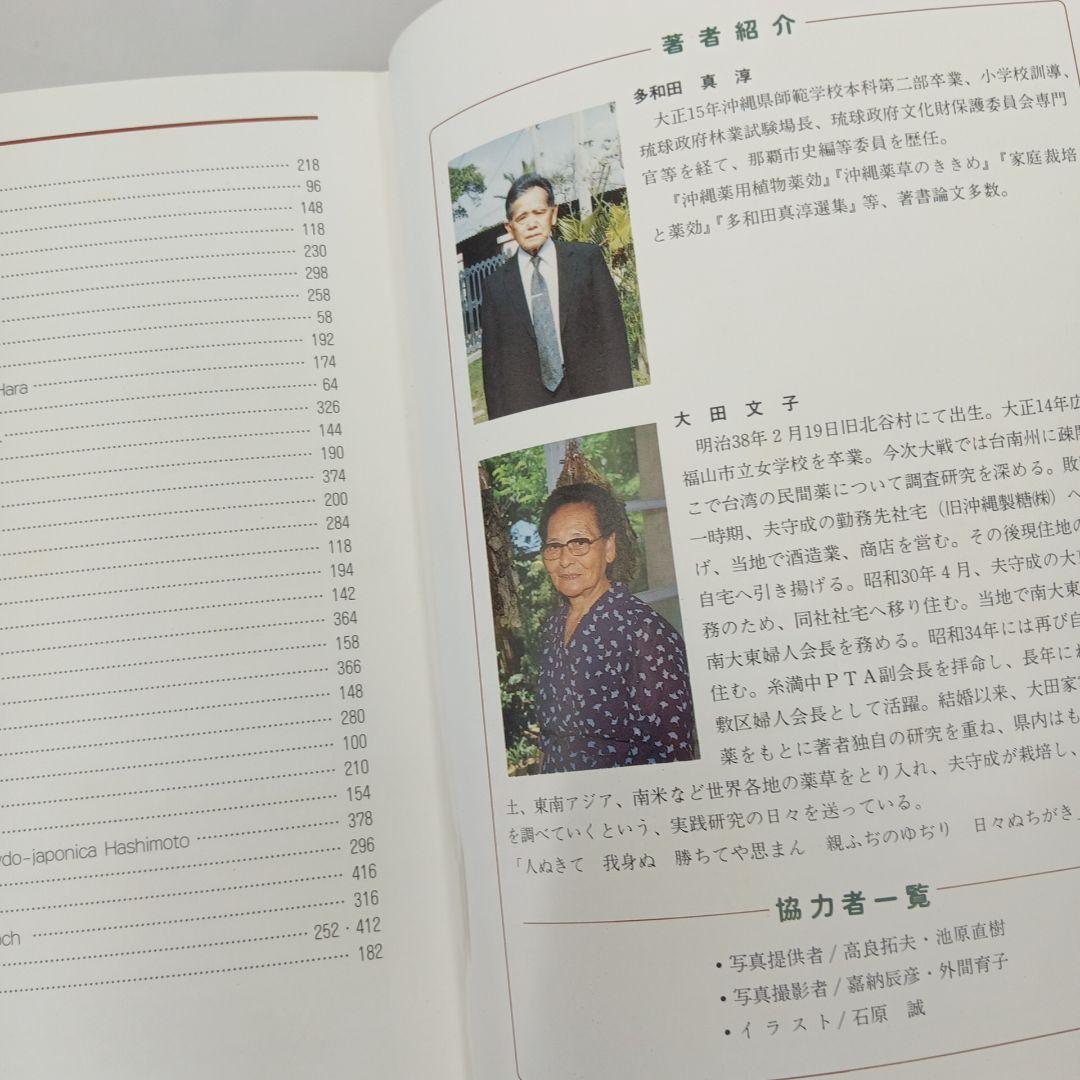 218
96
148
118
230
298
258
58
192
Hara 174
64
326
144
190
374
200
284
118
194
142
364
158
366
148
280
100
210
154
378
do-japonica Hashimoto 296
416
316
och 252・412
182
著者紹介
多和田 真 淳
大正15年沖縄県師範学校本科第二部卒業、小学校訓導、
琉球政府林業試験場長、琉球政府文化財保護委員会専門
官等を経て、那覇市史編等委員を歴任。
『沖縄薬用植物薬効』『沖縄薬草のききめ』『家庭裁培
と薬効』『多和田真淳選集』等、著書論文多数。
大 田 文 子
明治38年2月19日旧北谷村にて出生。大正14年広
福山市立女学校を卒業。今次大戦では台南州に疎開
こで台湾の民間薬について調査研究を深める。敗
一時期、夫守成の勤務先社宅（旧沖縄製糖㈱）へ
げ、当地で酒造業、商店を営む。その後現住地の
自宅へ引き揚げる。昭和30年4月、夫守成の大東
務のため、同社社宅へ移り住む。当地で南大東
南大東婦人会長を務める。昭和34年には再び自
住む。糸満中PTA副会長を拝命し、長年に
敷区婦人会長として活躍。結婚以来、大田家
薬をもとに著者独自の研究を重ね、県内はも
土、東南アジア、南米など世界各地の薬草をとり入れ、夫守成が栽培し、
を調べていくという、実践研究の日々を送っている。
「人ぬきて 我身ぬ 勝ちてや思まん 親ふぢのゆぢり 日々ぬちがき」
協力者一覧
・写真提供者/高良拓夫・池原直樹
・写真撮影者/嘉納辰彦・外間育子
・イラスト/石原 誠